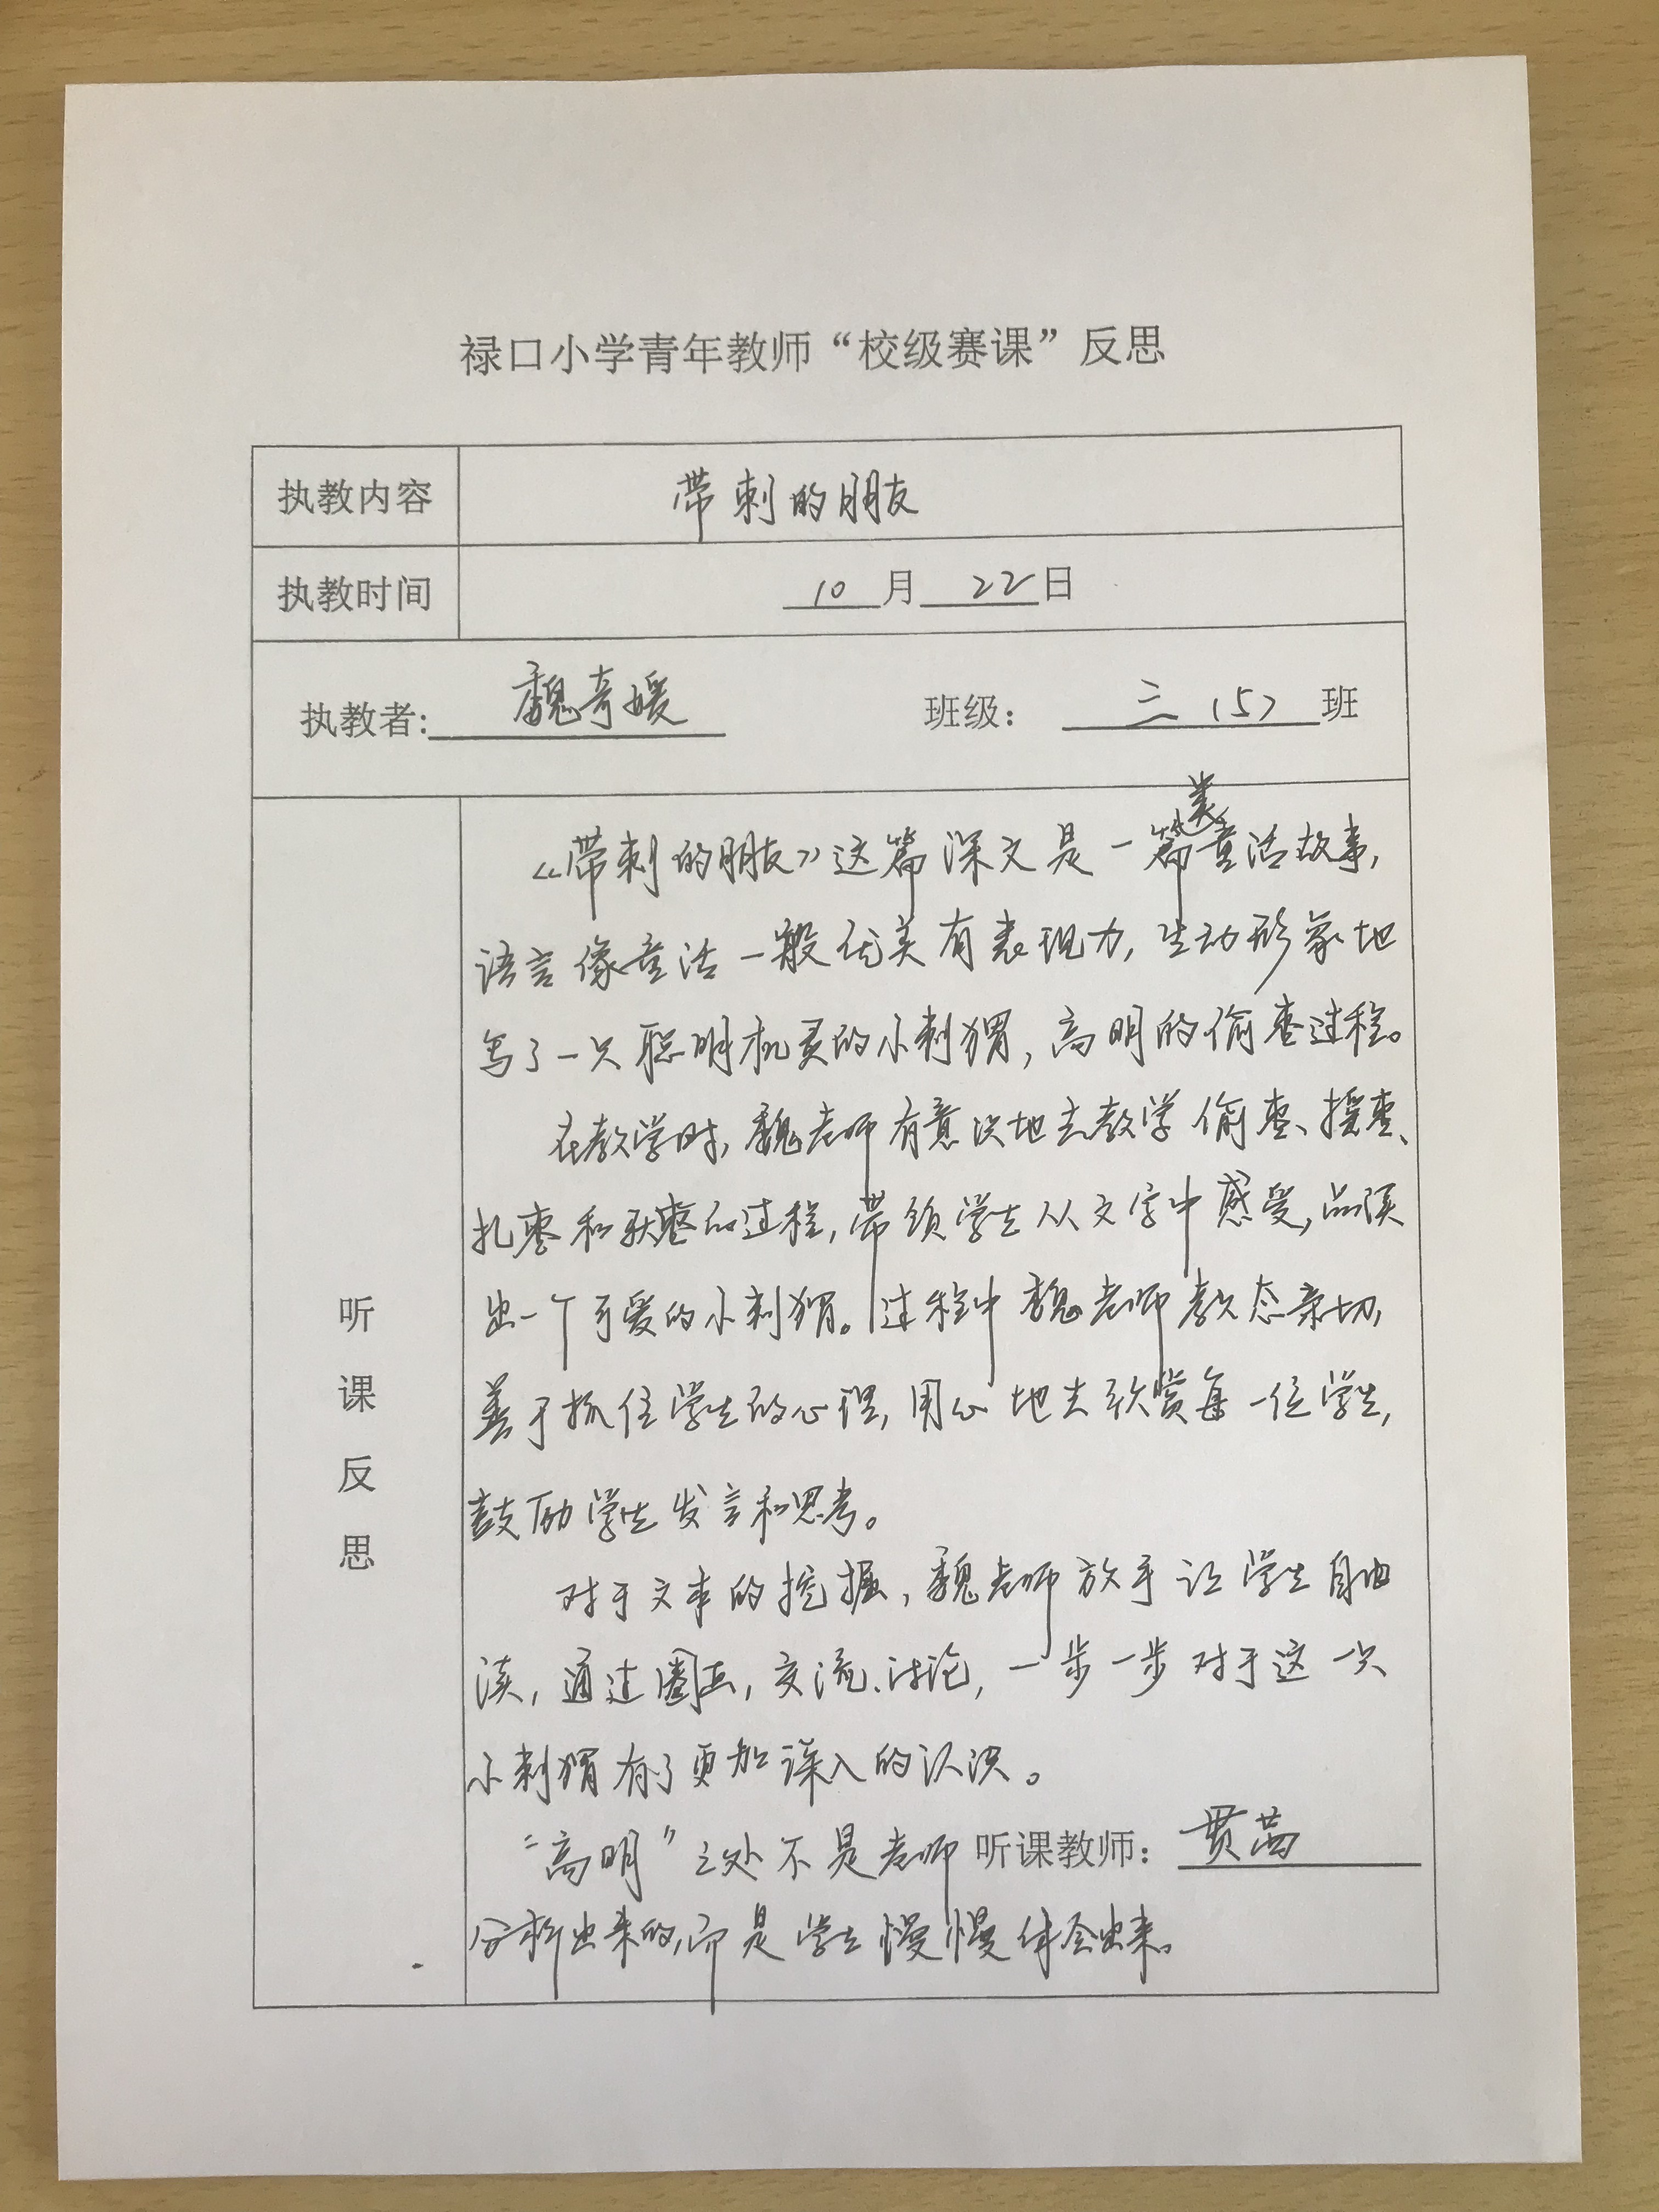 禄口小学青年教师“校级赛课”反思
执教内容 带刺的朋友
执教时间 10月22日
执教者:魏奇媛 班级：三（5）班
听课反思
《带刺的朋友》这篇课文是一篇类童话故事，
语言像童话一般优美有表现力，生动形象地
写了一只聪明机灵的小刺猬，高明的偷枣过程。
在教学时，魏老师有意识地去教学偷枣、摇枣、
扎枣和驮枣的过程，带领学生从文字中感受，品读
出一个可爱的小刺猬。过程中魏老师教态亲切，
善于抓住学生的心理，用心地去欣赏每一位学生，
鼓励学生发言和思考。
对于文本的挖掘，魏老师放手让学生自由
读，通过圈画，交流、讨论，一步一步对于这一只
小刺猬有了更加深入的认识。
“高明”之处不是老师 听课教师：贾茜
分析出来的，而是学生慢慢体会出来。